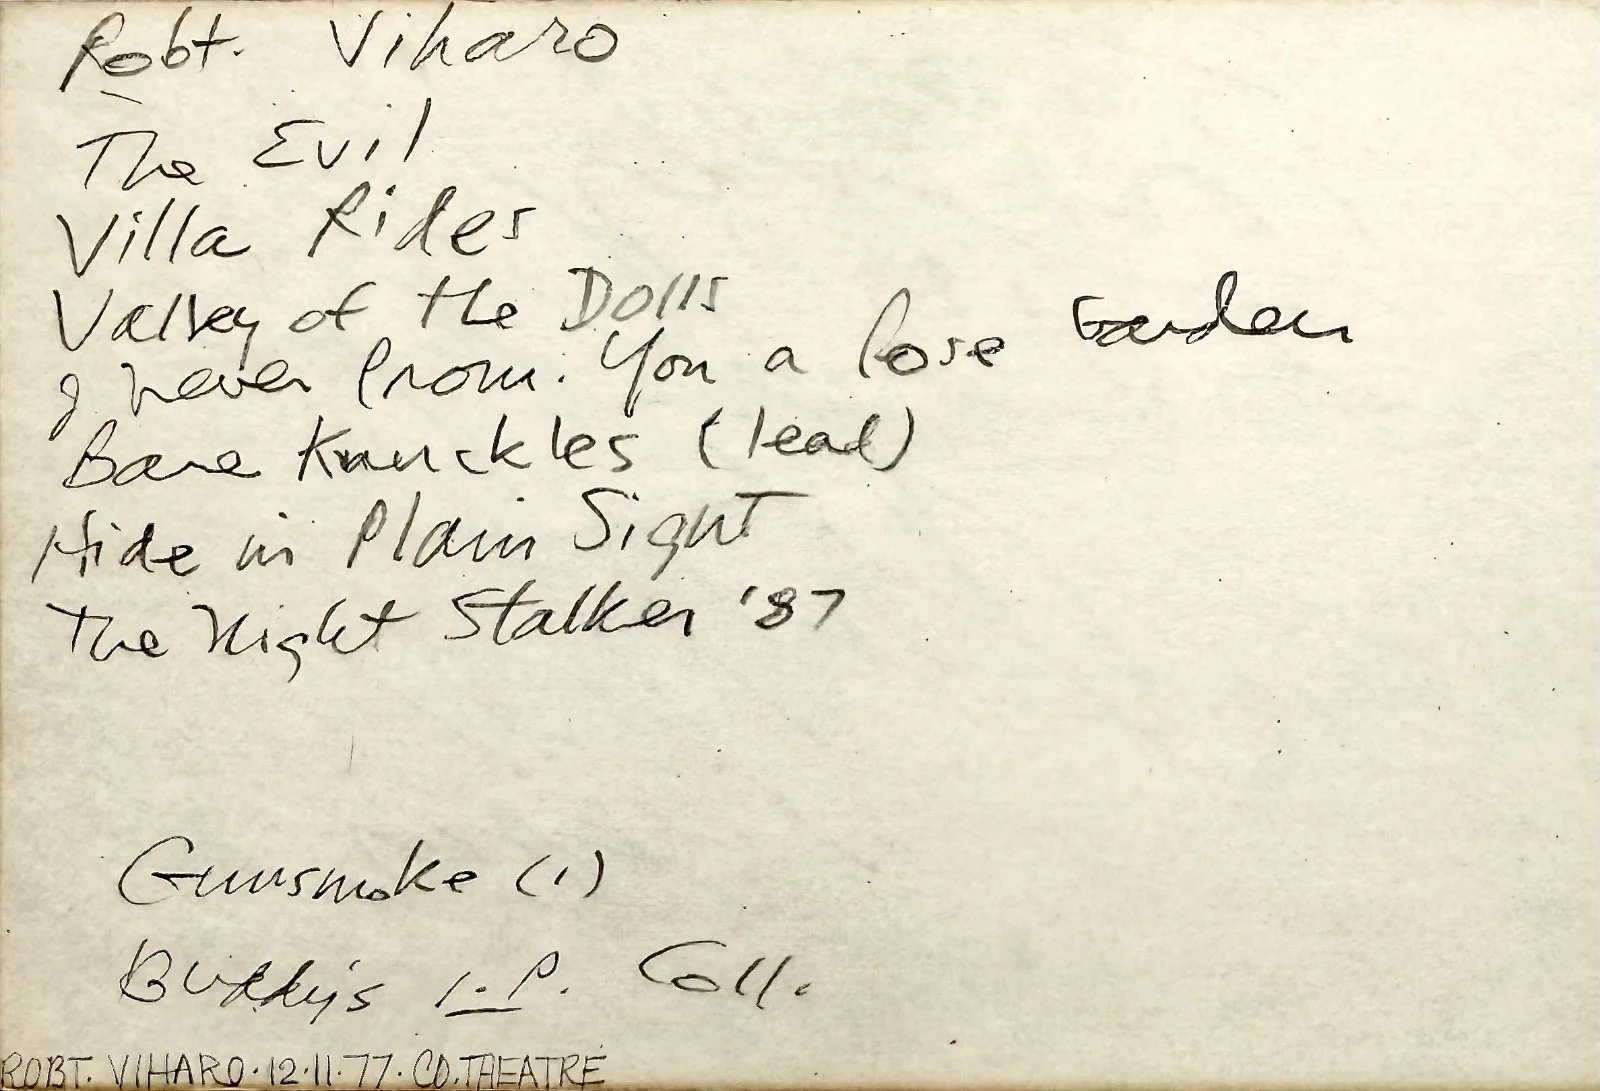 Robt. Viharo
The Evil
Villa Rides
Valley of the Dolls
I never Prom. You a Rose Garden
Bare Knuckles (lead)
Hide in Plain Sight
The Night Stalker '87
Gunsmoke (1)
Buddy's I.P. Coll.
ROBT. VIHARO·12·11·77·CO.THEATRE